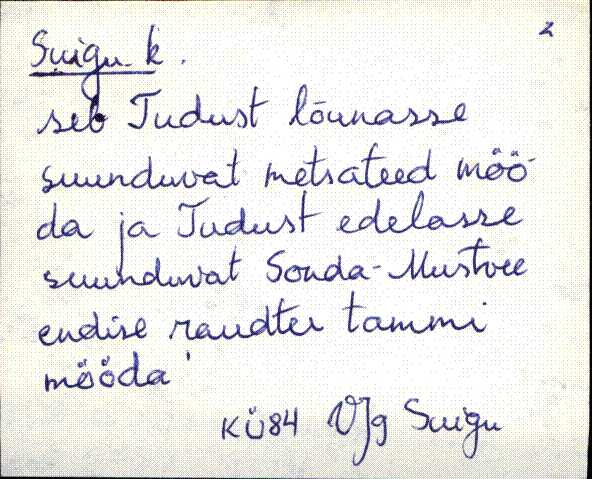 2
Suigu k.
seb Tudust lõunasse
suunduvat metsateed möö-
da ja Tudust edelasse
suunduvat Sonda-Mustvee
endise raudtee tammi
mööda
KÜ84 VJg Suigu